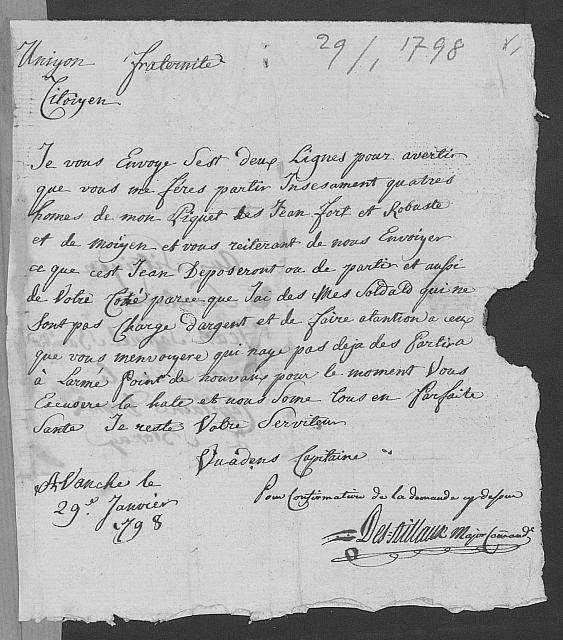 29/1 1798
Uniyon fraternite
Citoiyen
Je vous Envoye Sest deux Lignes pour avertir
que vous me feres partir Insesament quatres
homes de mon Piquet des Jean fort et Robuste
et de moiyen et vous reiterant de nous Envoiyer
ce que cest Jean Deposeront ou de partir et ausoi
de Votre Coté parce que Jai des Mes Soldald qui ne
Sont pas Charge d'argent et de faire atantion a ceux
que vous menvoyere qui naye pas deja des Partira
à Larme Point de nouvaux pour le moment Vous
Excusere la hate et nous Some tous en Parfaite
Sante Je reste Votre Serviteur
Vuadens Capitaine
A Vanche le
29e Janvier
1798
Pour Confirmation de la demande cy dessus
Des-Aillaux Major Command.t